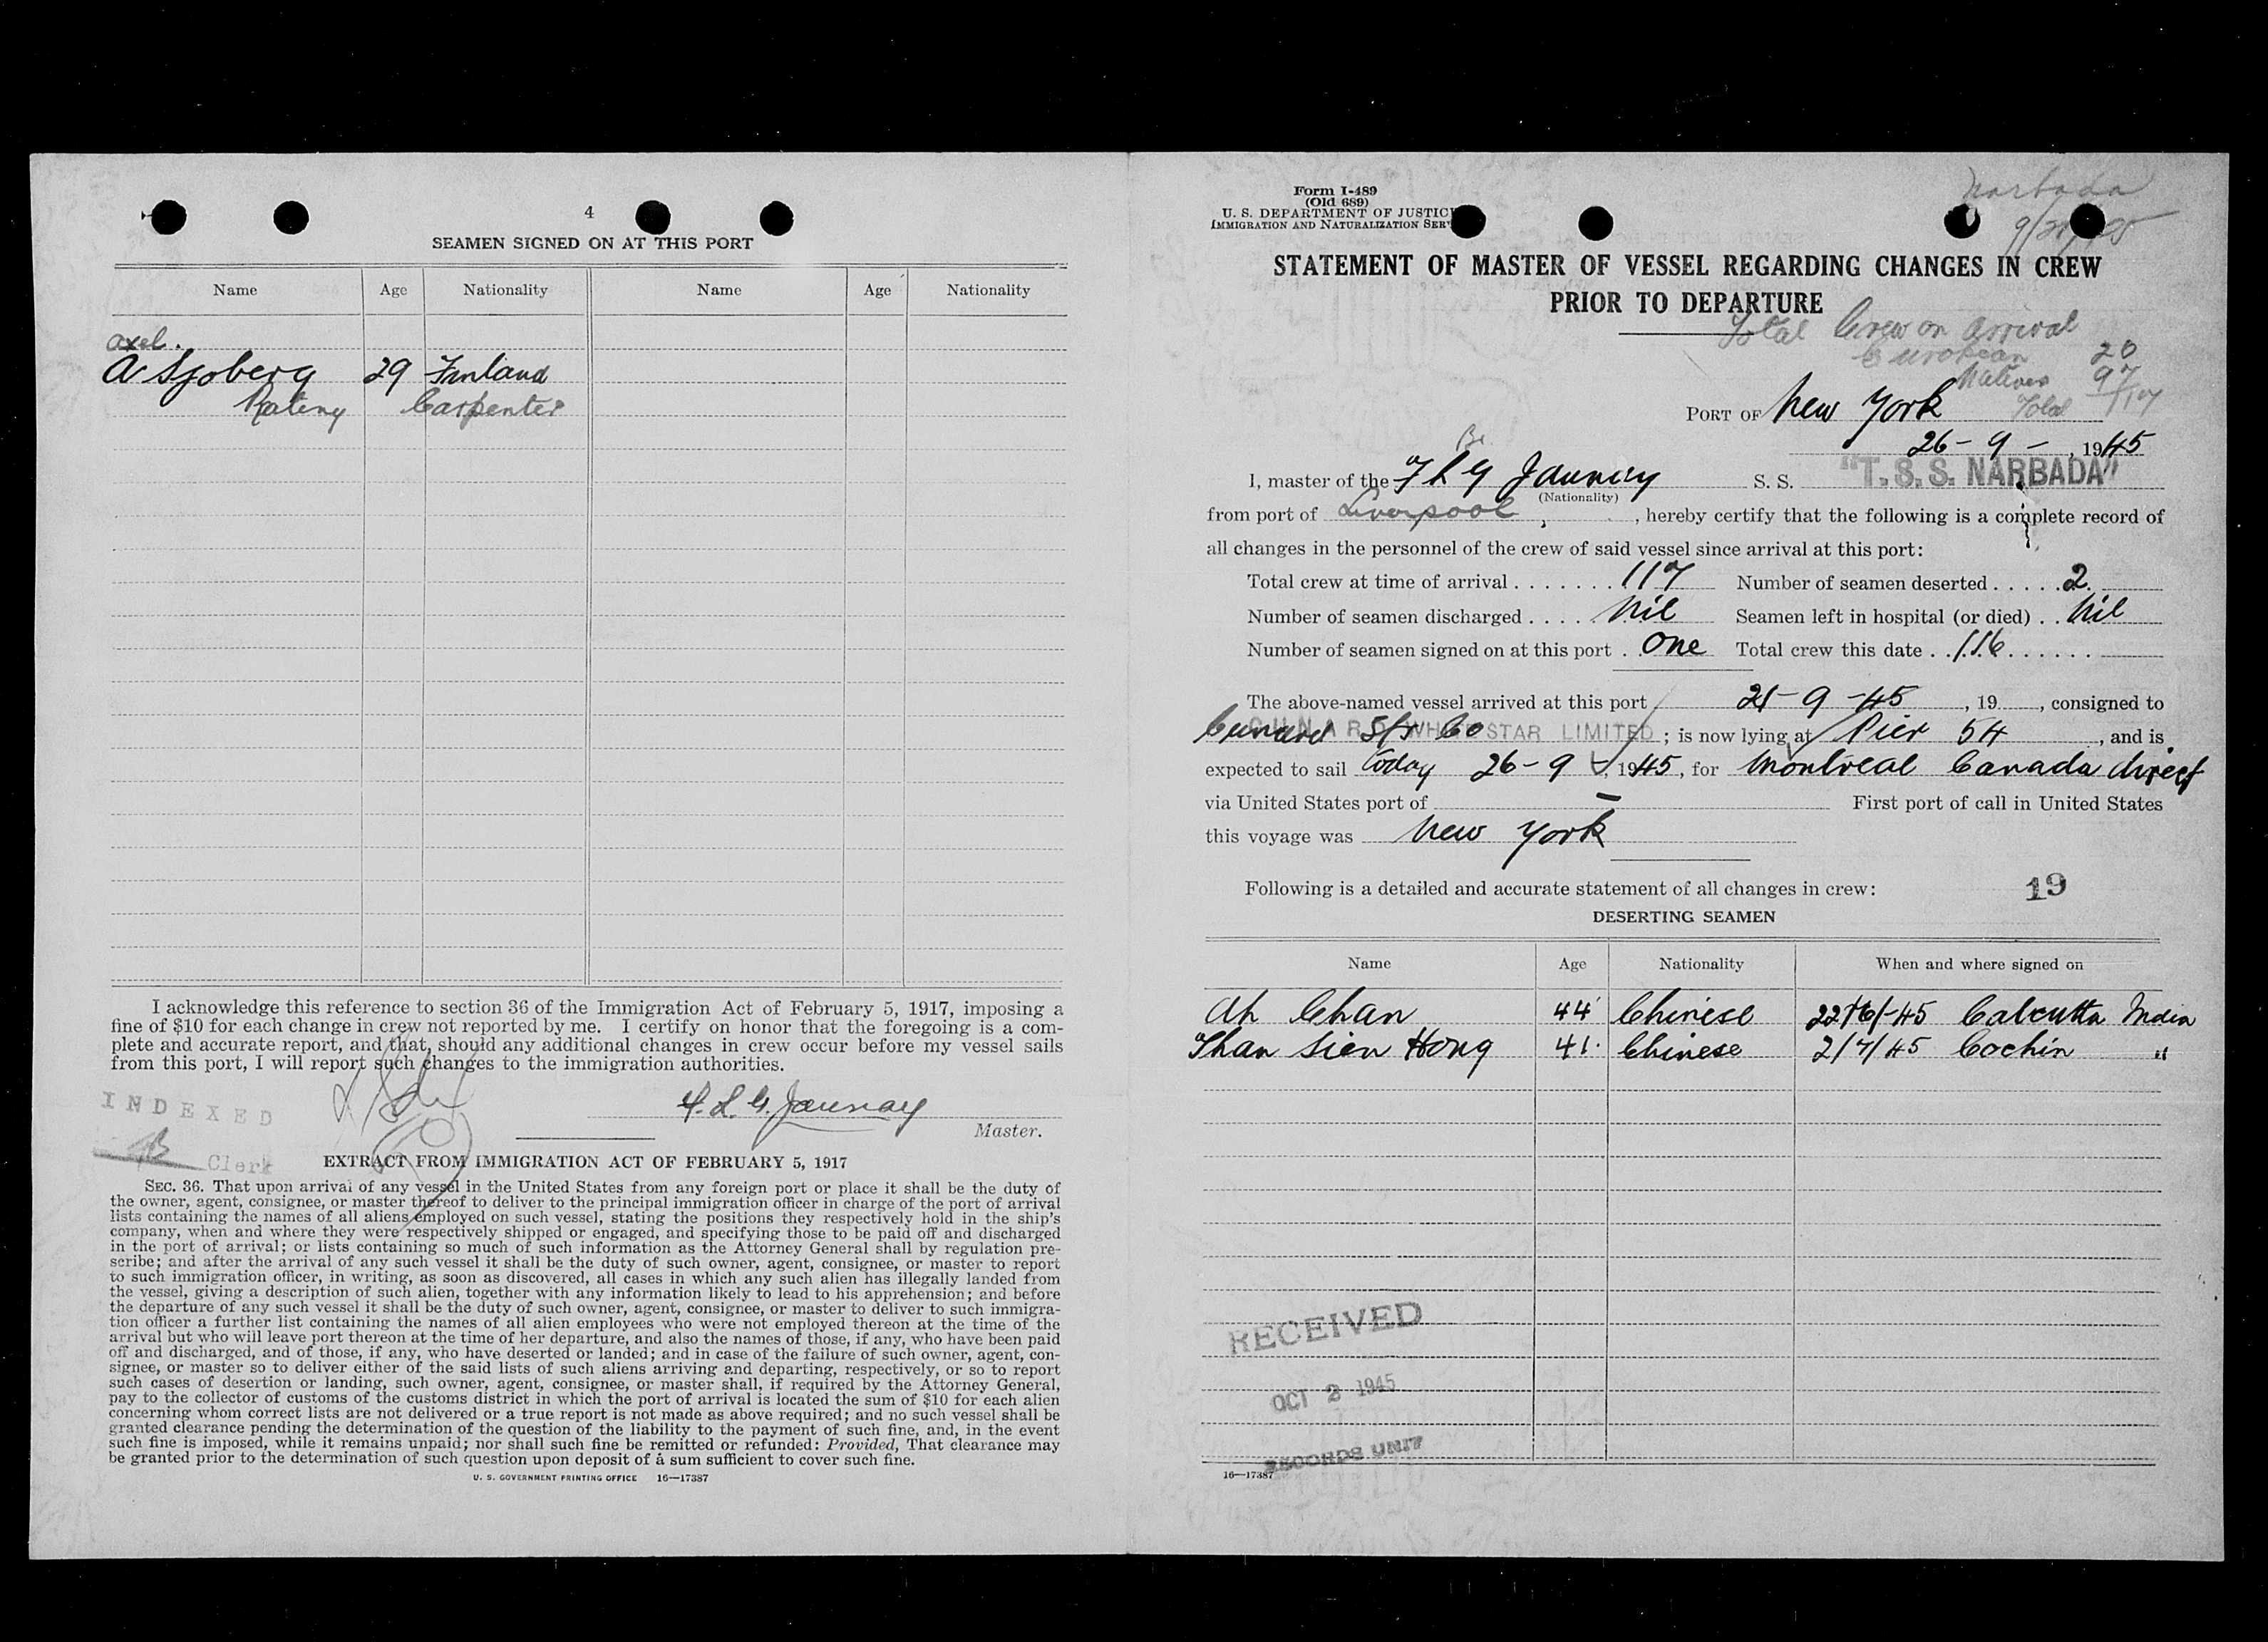 4
SEAMEN SIGNED ON AT THIS PORT
Name Age Nationality Name Age Nationality
Axel.
A Sjoberg 29 Finland
Rating Carpenter
I acknowledge this reference to section 36 of the Immigration Act of February 5, 1917, imposing a
fine of $10 for each change in crew not reported by me. I certify on honor that the foregoing is a com-
plete and accurate report, and that, should any additional changes in crew occur before my vessel sails
from this port, I will report such changes to the immigration authorities.
INDEXED
F. L. G. Jaunay
Master.
Clerk
EXTRACT FROM IMMIGRATION ACT OF FEBRUARY 5, 1917
SEC. 36. That upon arrival of any vessel in the United States from any foreign port or place it shall be the duty of
the owner, agent, consignee, or master thereof to deliver to the principal immigration officer in charge of the port of arrival
lists containing the names of all aliens employed on such vessel, stating the positions they respectively hold in the ship's
company, when and where they were respectively shipped or engaged, and specifying those to be paid off and discharged
in the port of arrival; or lists containing so much of such information as the Attorney General shall by regulation pre-
scribe; and after the arrival of any such vessel it shall be the duty of such owner, agent, consignee, or master to report
to such immigration officer, in writing, as soon as discovered, all cases in which any such alien has illegally landed from
the vessel, giving a description of such alien, together with any information likely to lead to his apprehension; and before
the departure of any such vessel it shall be the duty of such owner, agent, consignee, or master to deliver to such immigra-
tion officer a further list containing the names of all alien employees who were not employed thereon at the time of the
arrival but who will leave port thereon at the time of her departure, and also the names of those, if any, who have been paid
off and discharged, and of those, if any, who have deserted or landed; and in case of the failure of such owner, agent, con-
signee, or master so to deliver either of the said lists of such aliens arriving and departing, respectively, or so to report
such cases of desertion or landing, such owner, agent, consignee, or master shall, if required by the Attorney General,
pay to the collector of customs of the customs district in which the port of arrival is located the sum of $10 for each alien
concerning whom correct lists are not delivered or a true report is not made as above required; and no such vessel shall be
granted clearance pending the determination of the question of the liability to the payment of such fine, and, in the event
such fine is imposed, while it remains unpaid; nor shall such fine be remitted or refunded: Provided, That clearance may
be granted prior to the determination of such question upon deposit of a sum sufficient to cover such fine.
U. S. GOVERNMENT PRINTING OFFICE 16—17387
Form I-489
(Old 689)
U. S. DEPARTMENT OF JUSTICE
IMMIGRATION AND NATURALIZATION SERV
Narbada
STATEMENT OF MASTER OF VESSEL REGARDING CHANGES IN CREW
PRIOR TO DEPARTURE
Total Crew on arrival
European 20
Natives 97
Total 117
PORT OF New York
26-9-, 1945
Br
I, master of the F L G Jaunay S. S. "T.S.S. NARBADA"
(Nationality)
from port of Liverpool, hereby certify that the following is a complete record of
all changes in the personnel of the crew of said vessel since arrival at this port:
Total crew at time of arrival . . . . . . . 117 Number of seamen deserted . . . . . 2
Number of seamen discharged . . . . Nil Seamen left in hospital (or died) . . Nil
Number of seamen signed on at this port . One Total crew this date . . 116 . . . . . .
The above-named vessel arrived at this port 21-9-45, 19 , consigned to
Cunard S/S Co CUNARD WHITE STAR LIMITED; is now lying at Pier 54, and is
expected to sail today 26-9-, 1945, for Montreal Canada direct
via United States port of — First port of call in United States
this voyage was New York
Following is a detailed and accurate statement of all changes in crew: 19
DESERTING SEAMEN
Name Age Nationality When and where signed on
Ah Chan 44 Chinese 22/6/45 Calcutta India
Than Sien Hong 41. Chinese 2/7/45 Cochin "
RECEIVED
OCT 2 1945
RECORDS UNIT
16—17387